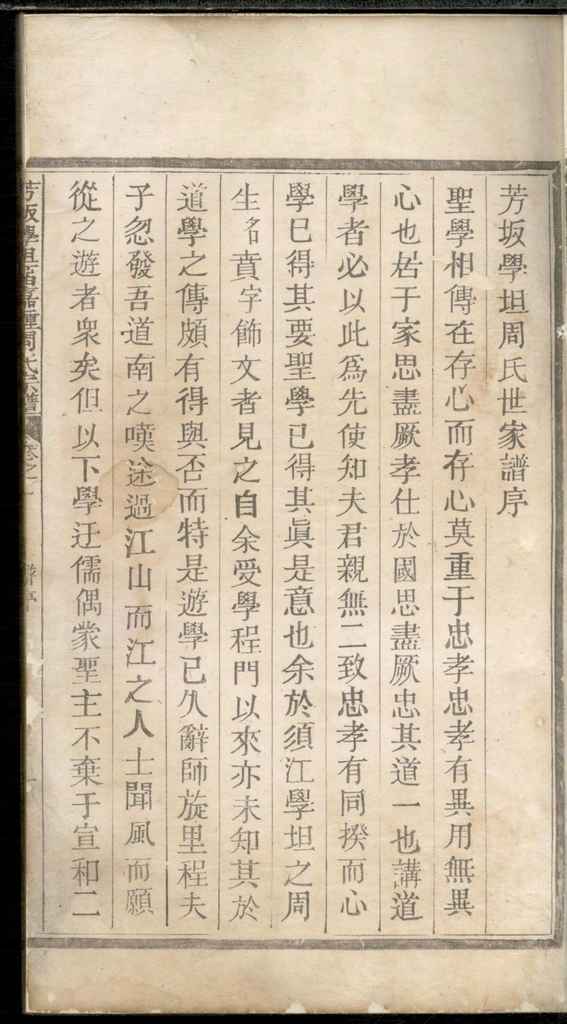 芳坂學坦周氏世家譜序
聖學相傳在存心而存心莫重于忠孝忠孝有異用無異
心也居于家思盡厥孝仕於國思盡厥忠其道一也講道
學者必以此爲先使知夫君親無二致忠孝有同揆而心
學已得其要聖學已得其眞是意也余於須江學坦之周
生名賁字飾文者見之自余受學程門以來亦未知其於
道學之傳頗有得與否而特是遊學已久辭師旋里程夫
子忽發吾道南之嘆途過江山而江之人士聞風而願
從之遊者衆矣但以下學迂儒偶蒙聖主不棄于宣和二
芳坂學坦 嘉 周氏宗譜 卷之一